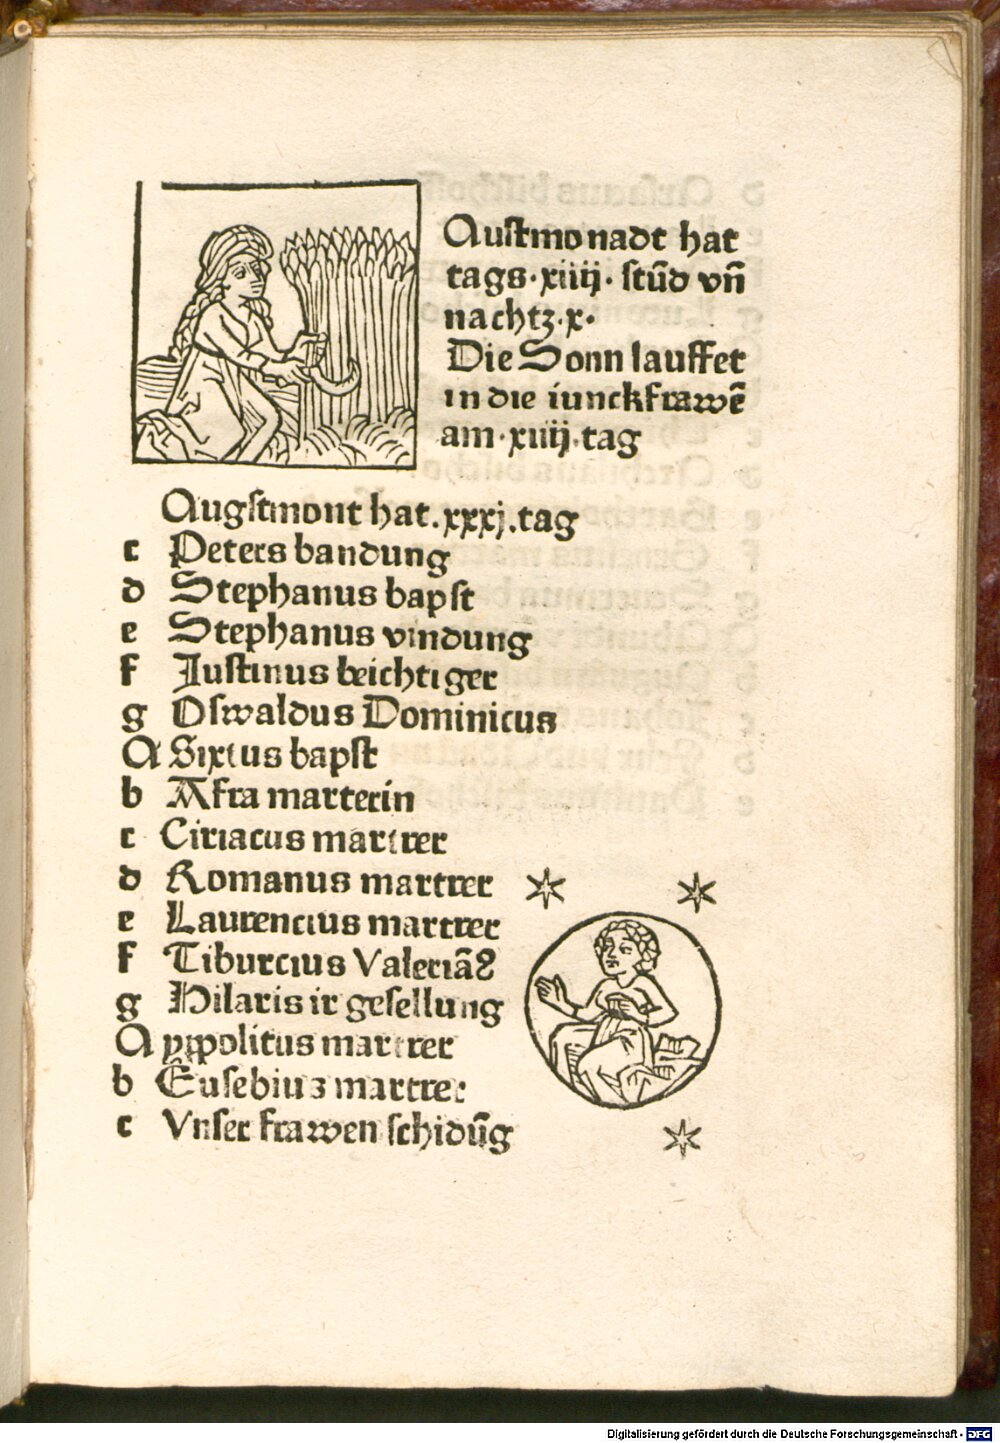 Austmonadt hat
tags·xiiij· stūd vn̄
nachtz·x·
Die Sonn lauffet
in die iunckfrawē
am·xiiij·tag
Augstmont hat.xxxj.tag
c Peters bandung
d Stephanus bapst
e Stephanus vindung
f Iustinus beichtiger
g Oswaldus Dominicus
A Sixtus bapst
b Afra marterin
c Ciriacus martrer
d Romanus martrer
e Laurencius martrer
f Tiburcius Valeriāꝰ
g Hilaris ir gesellung
A ypolitus martrer
b Eusebius martrer
c Vnser frawen schidūg
Digitalisierung gefördert durch die Deutsche Forschungsgemeinschaft - DFG